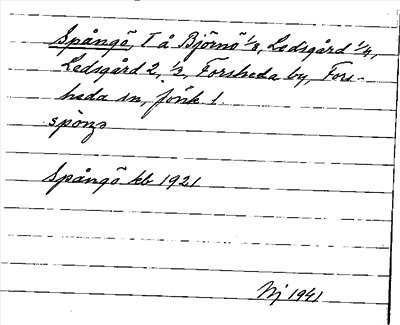 Spångö, T å Björnö 1/8, Ledsgård 1/4,
Ledsgård 2, 1/3, Forsheda by, Fors-
heda sn, Jönk l.
spöŋo
Spångö kb 1921
Nj 1941